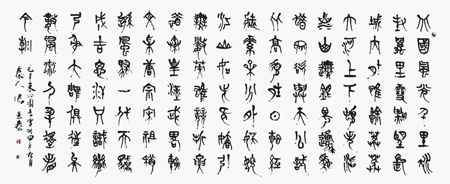 北國風光千里冰
封萬里雪飄望長
城內外惟餘莽莽
大河上下頓失滔
滔山舞銀蛇原馳
蠟象欲與天公試
比高須晴日看紅
裝素裹分外妖嬈
江山如此多嬌引
無數英雄競折腰
惜秦皇漢武略輸
文采唐宗宋祖稍
遜風騷一代天驕
成吉思汗只識彎
弓射大雕俱往矣
數風流人物還看
今朝